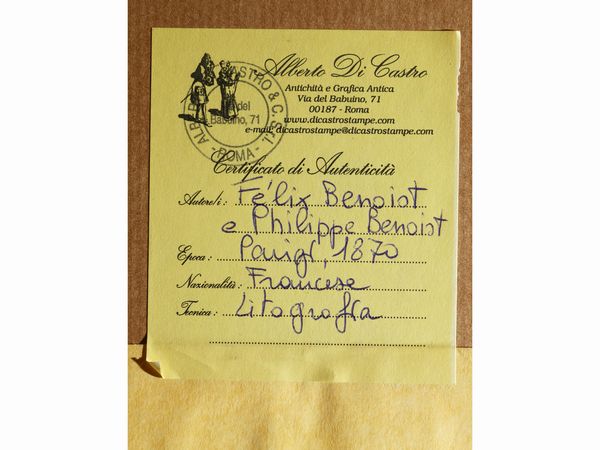 Alberto Di Castro
Antichità e Grafica Antica
Via del Babuino, 71
00187 - Roma
www.dicastrostampe.com
e-mail: dicastrostampe@dicastrostampe.com
CASTRO & C. S.r.l.
del
Babuino, 71
- ROMA -
Certificato di Autenticità
Autore/i: Félix Benoist
e Philippe Benoist
Epoca: Parigi, 1870
Nazionalità: Francese
Tecnica: Litografia